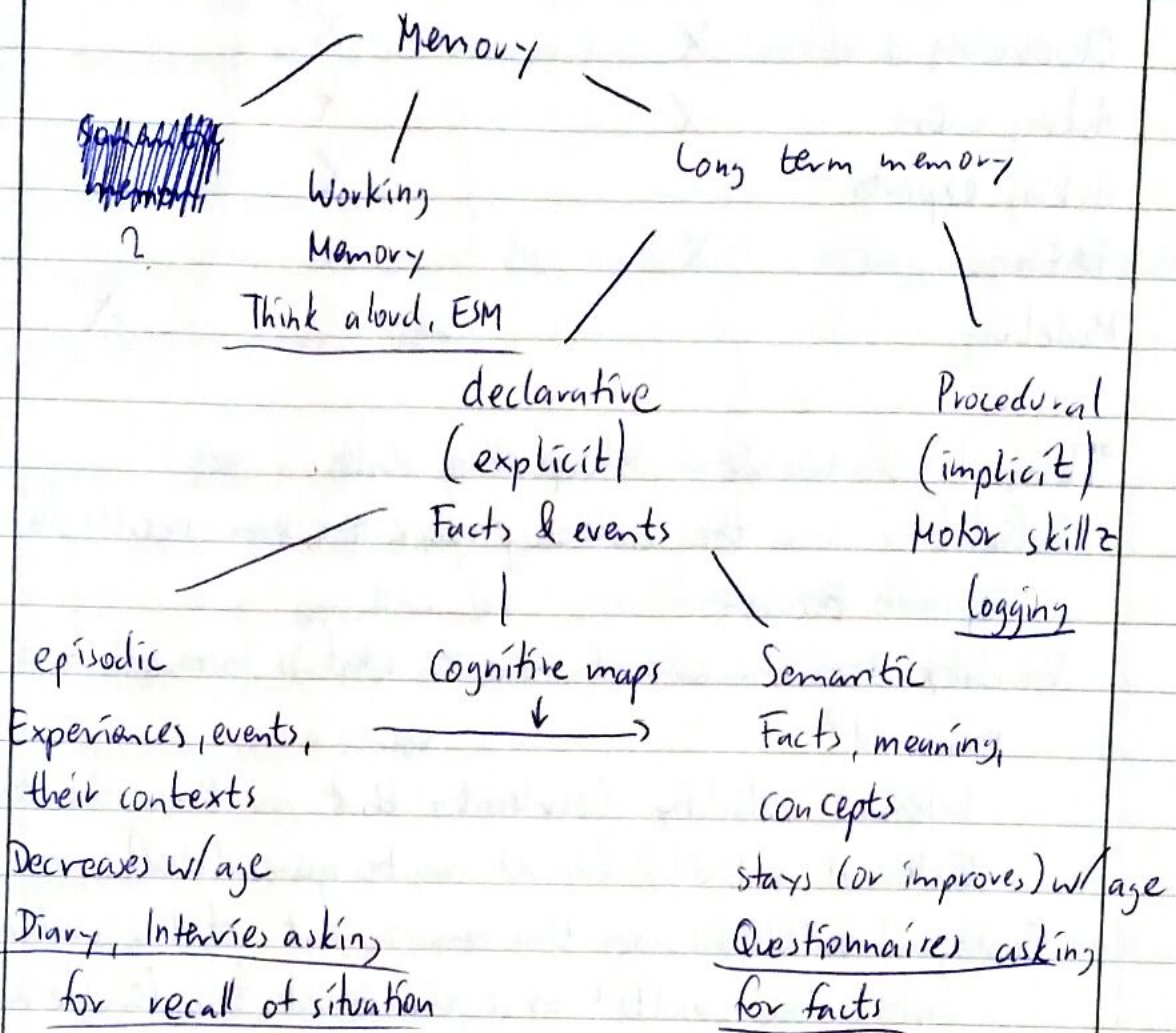 Memory
memory
?
Working
Memory
Think aloud, ESM
Long term memory
declarative
(explicit)
Facts & events
Procedural
(implicit)
Motor skillz
logging
episodic
Experiences, events,
their contexts
Decreases w/ age
Diary, Intervies asking
for recall of situation
Cognitive maps
Semantic
Facts, meaning,
concepts
stays (or improves) w/ age
Questionnaires asking
for facts